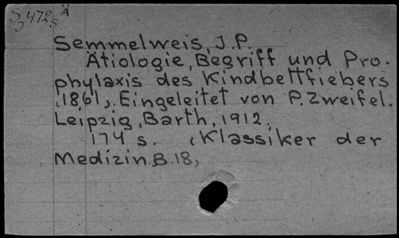 Semmelweis, J.P.
Ätiologie, Begriff und Pro-
phylaxis des Kindbettfiebers
(1861). Eingeleitet von P. Zweifel.
Leipzig, Barth, 1912.
174 s. (Klassiker der
Medizin. B. 18)